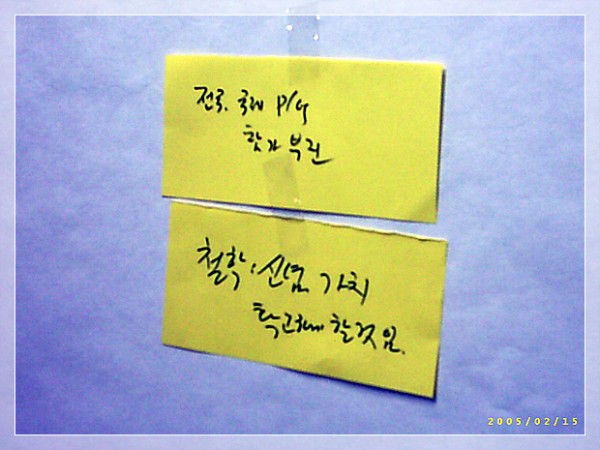 전국. 국제 P/G
참가 부진
철학, 신념 가치
확고해 할것임.
2005/02/15